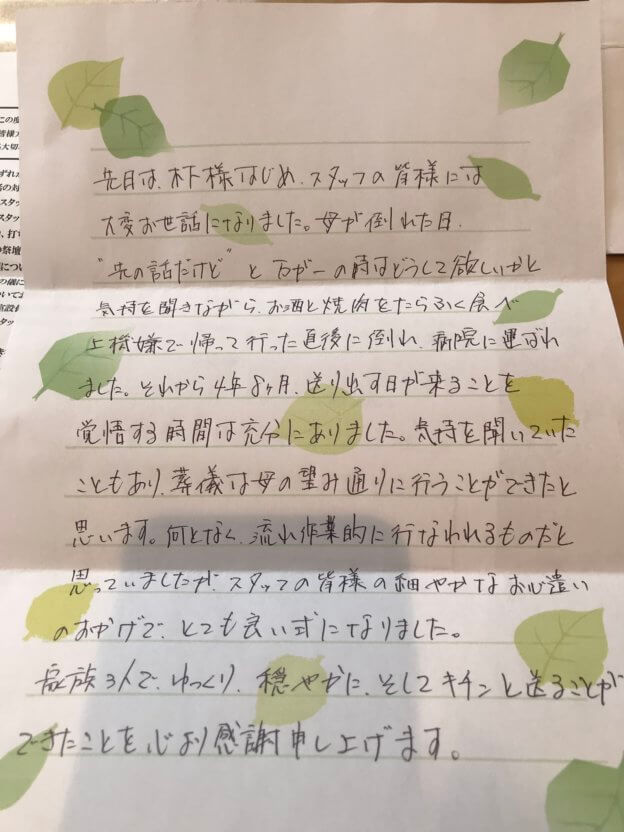 先日は、木下様はじめ、スタッフの皆様には
大変お世話になりました。母が倒れた日、
"先の話だけど" と 万が一の時はどうして欲しいかと
気持を聞きながら、お酒と焼肉をたらふく食べ
上機嫌で帰って行った直後に倒れ、病院に運ばれ
ました。それから4年8ヶ月、送り出す日が来ることを
覚悟する時間は充分にありました。気持を聞いていた
こともあり、葬儀は母の望み通りに行うことができたと
思います。何となく、流れ作業的に行なわれるものだと
思っていましたが、スタッフの皆様の細やかなお心遣い
のおかげで、とても良い式になりました。
家族3人で、ゆっくり、穏やかに、そしてキチンと送ることが
できたことを心より感謝申し上げます。
この度
皆様
大切
ずれた
の対
スタッ
スタッ
、打ち
の祭壇
につい
の儀に
いてお
設備
タッ